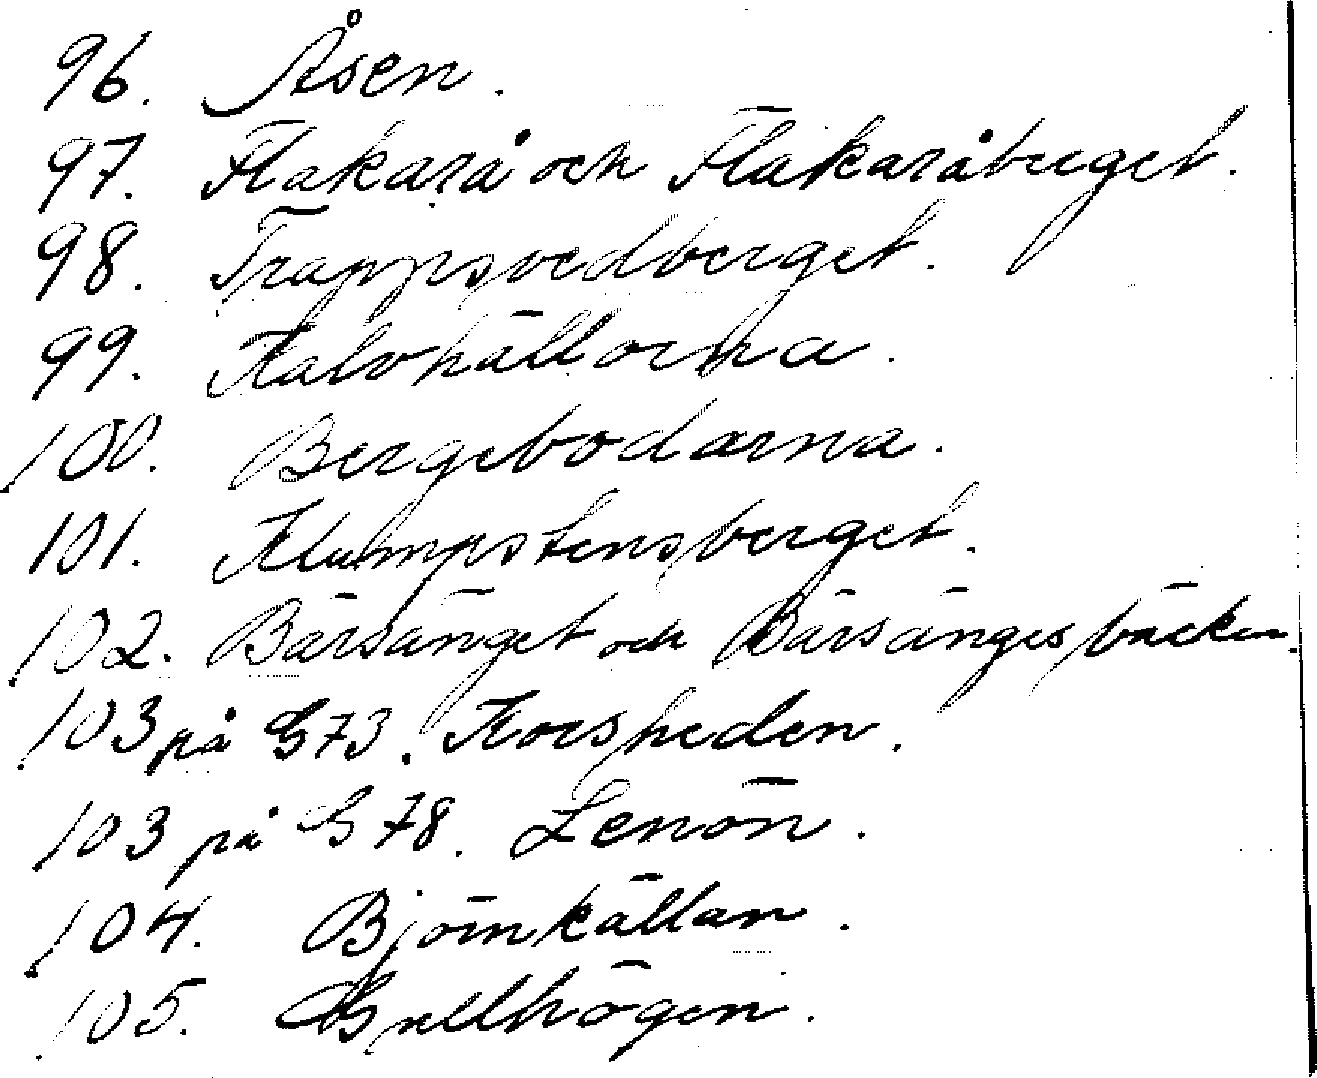 96. Åsen.
97. Flakarå och Flakaråberget.
98. Trappsvedberget.
99. Kalvhällorna.
100. Bergebodarna.
101. Klumpstensberget.
102. Bärsänget och Bärsängesbäcken.
103 på G 73. Korsheden.
103 på G 78. Lenön.
104. Björnkällan.
105. Gullhögen.